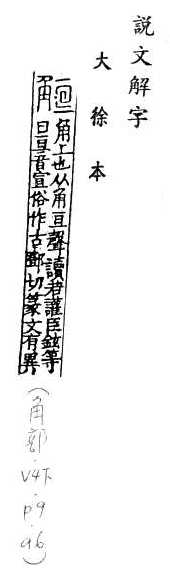 說文解字
大徐本
角匕也从角亘聲讀若讙臣鉉等
曰亘音宣俗作古鄧切篆文有異
(角部·V4下·p9·a6)